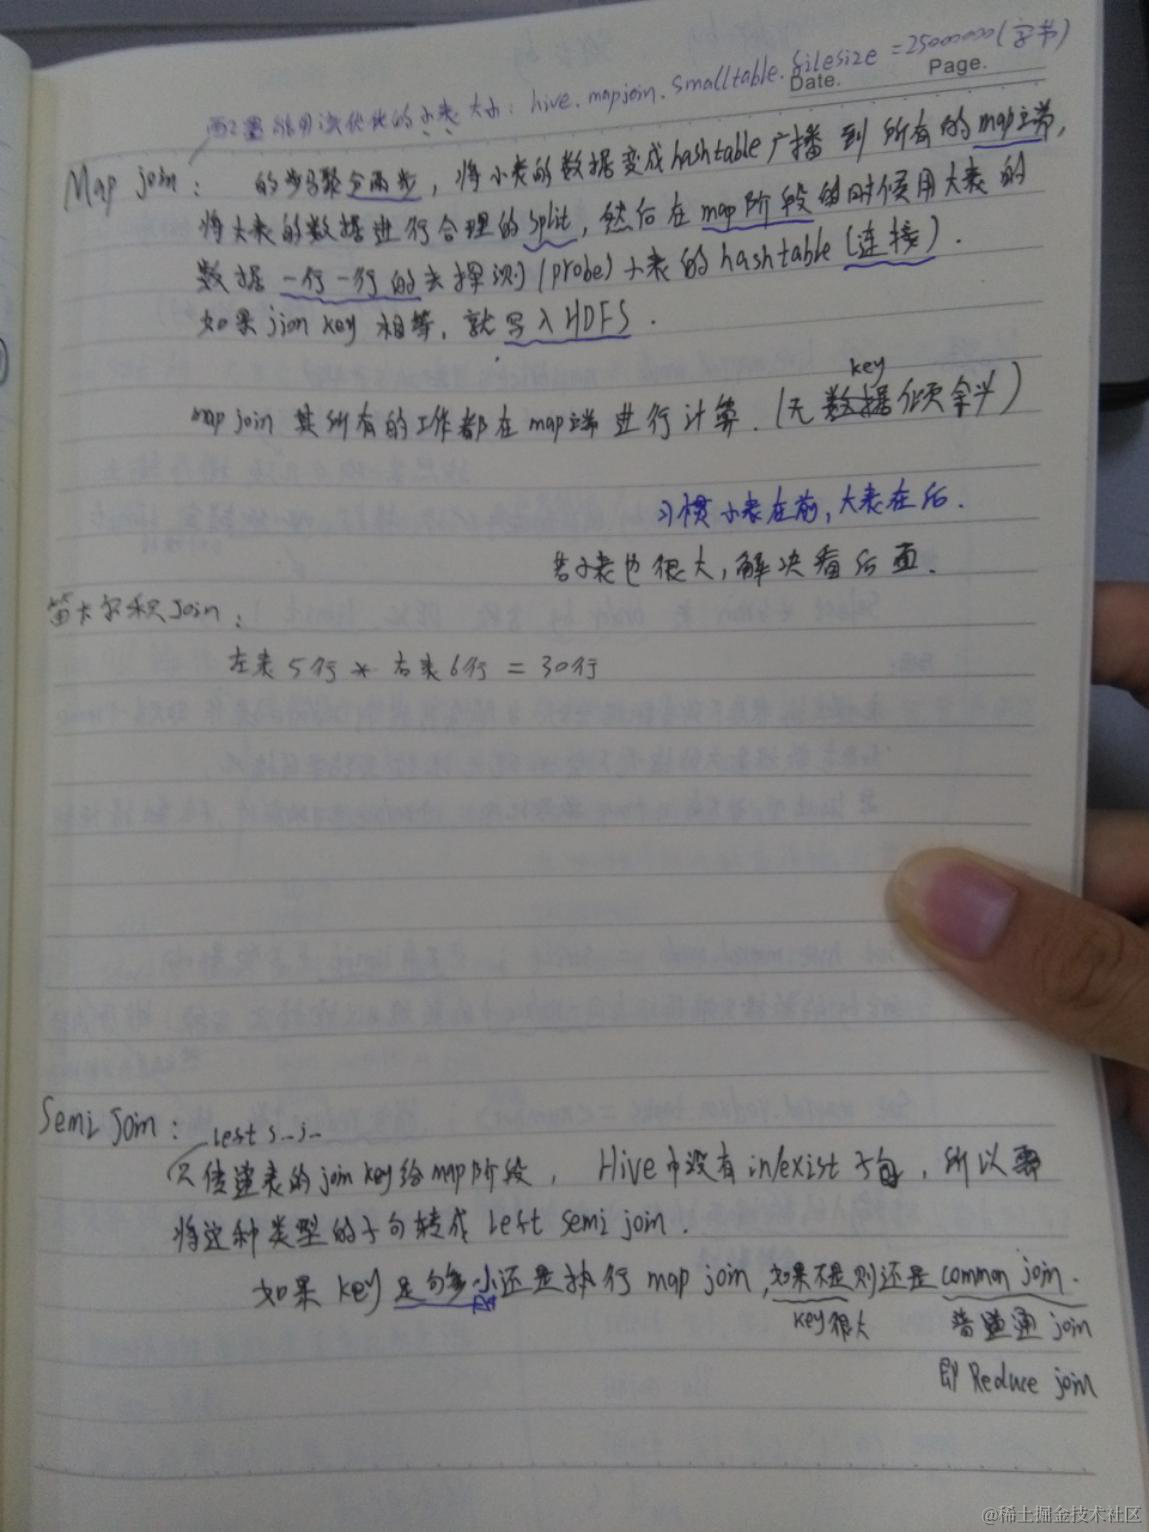 配置能用该优化的小表大小：hive.mapjoin.smalltable.filesize = 25000000(字节)
Date. Page.
Map join： 的步骤分两步，将小表的数据变成hashtable广播到所有的map端，
将大表的数据进行合理的split，然后在map阶段的时候用大表的
数据一行一行的去探测(probe)小表的hashtable(连接).
如果jion key相等，就写入HDFS.
key
map join 其所有的工作都在map端进行计算.(无数据倾斜)
习惯小表在前，大表在后.
若小表也很大，解决看后面.
笛卡尔积Join：
左表5行 * 右表6行 = 30行
Semi Join：
left s..j..
只传递表的join key给map阶段， Hive中没有in/exist子句，所以需
将这种类型的子句转成left semi join.
如果key足够小还是执行map join，如果不是则还是common join.
key很大 普通 join
即Reduce join
@稀土掘金技术社区